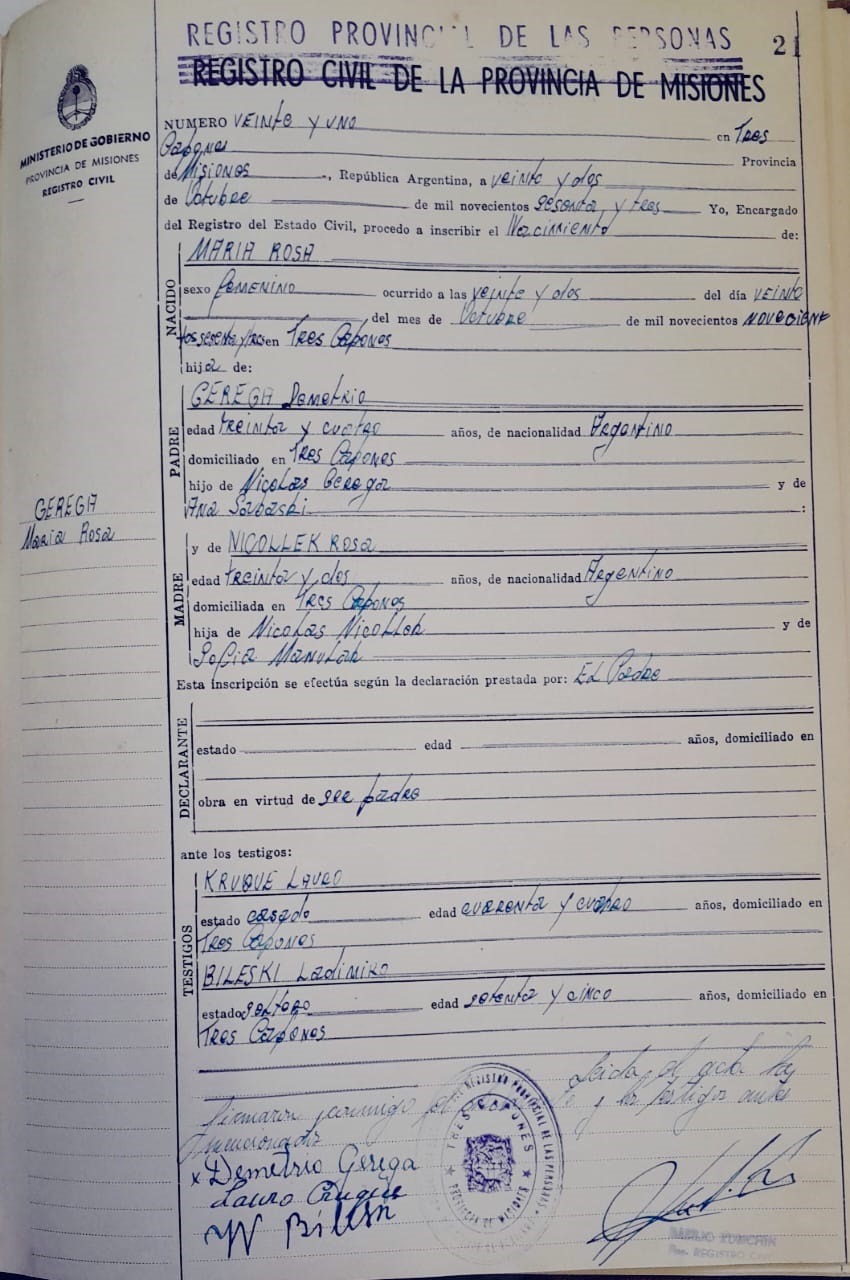 REGISTRO PROVINCIAL DE LAS PERSONAS
21
REGISTRO CIVIL DE LA PROVINCIA DE MISIONES
MINISTERIO DE GOBIERNO
PROVINCIA DE MISIONES
REGISTRO CIVIL
NUMERO VEINTE Y UNO en Tres
Capones Provincia
de Misiones, República Argentina, a veinte y dos
de Octubre de mil novecientos sesenta y tres Yo, Encargado
del Registro del Estado Civil, procedo a inscribir el Nacimiento de:
NACIDO
MARIA ROSA
sexo femenino ocurrido a las veinte y dos del día VEINTE
del mes de Octubre de mil novecientos NOVECIENT
tos sesenta y tres en Tres Capones
hija de:
PADRE
GEREGA Demetrio
edad treinta y cuatro años, de nacionalidad Argentino
domiciliado en Tres Capones
hijo de Nicolas Gerega y de
Ana Sabaski :
GEREGA
Maria Rosa
MADRE
y de NICOLLEK ROSA
edad treinta y dos años, de nacionalidad Argentino
domiciliada en Tres Capones
hija de Nicolas Nicollek y de
Sofia Manulak
Esta inscripción se efectúa según la declaración prestada por: El Padre
DECLARANTE
estado edad años, domiciliado en
obra en virtud de ser padre
ante los testigos:
TESTIGOS
KRUQUE LAURO
estado casado edad cuarenta y cuatro años, domiciliado en
Tres Capones
BILESKI Ladimiro
estado soltero edad setenta y cinco años, domiciliado en
Tres Capones
Leida el acta la
firmaron conmigo y los testigos antes
mencionados
x Demetrio Gerega
Lauro Cruque
REGISTRO PROVINCIAL DE LAS PERSONAS
TRES CAPONES
PROVINCIA DE MISIONES
REGISTRO CIVIL